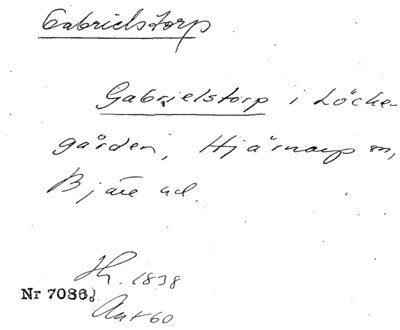 Gabrielstorp
Gabrielstorp i Löcke-
gården, Hjärnarp sn,
Bjäre hd.
Hl. 1838
Nr 7086
Ant 60